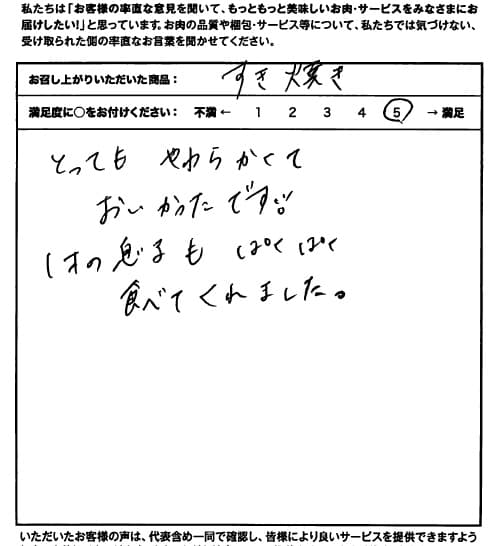 私たちは「お客様の率直な意見を聞いて、もっともっと美味しいお肉・サービスをみなさまにお
届けしたい!」と思っています。お肉の品質や梱包・サービス等について、私たちでは気づけない、
受け取られた側の率直なお言葉を聞かせてください。
お召し上がりいただいた商品: すき焼き
満足度に○をお付けください: 不満 ← 1 2 3 4 5 → 満足
とっても やわらかくて
おいかったです!!
1才の息子も ぱくぱく
食べてくれました。
いただいたお客様の声は、代表含め一同で確認し、皆様により良いサービスを提供できますよう